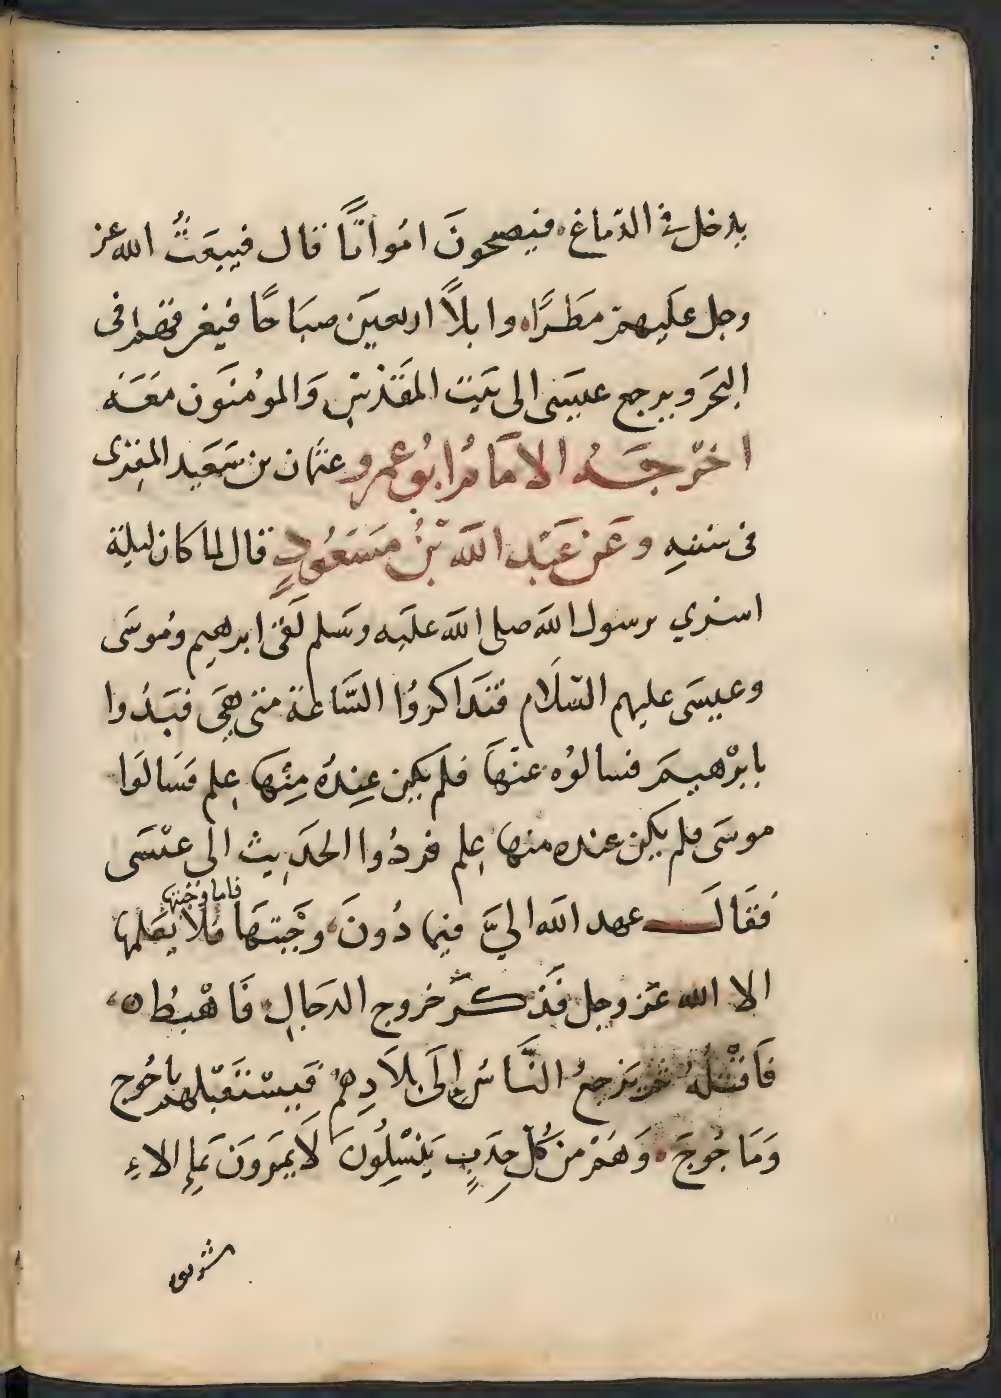 يدخل في الدماغ، فيصبحونَ امْواتًا قال فيبعَثُ الله عز
وجل عليهم مَطَرًا، وابلاً اربعين صبَاحًا فيغرقهم فى
البحَر ويرجع عيسَى الى بَيت المقَدّسِ وَالمؤمنُون مَعَه
اخرجَهُ الامَامُ ابُو عمرو عثمان بن سَعَيد المقرى
فى سننهِ وعَن عَبْد الله بْنُ مسَعُودٍ قال لما كان ليلة
اسري برسول الله صلى الله عليه وسَلم لقى ابرهيم ومُوسَى
وعيسَى عليهم السّلَام فتذَاكرُوا السَّاعة متى هِىَ فبَدُوا
بابْرهيمَ فسالوُه عنّهَا فلم يكن عِندهُ مِنْها عِلم فسَالوَا
موسَى فلم يكن عنده منها عِلم فردُوا الحدَيث الى عيْسَى
فقَالَ عهد الله اليَّ فيما دُونَ، وجْبتهَا فلَا يعَلمها
فاما وجبتها
الا الله عَز وجل فذَكرَ خروج الدجالِ، فَاهْبطُ ه،
فَاقتُلُهُ ثم يَرجعُ النَّاسُ إلَى بلَادِهِمْ فَيَستقَبْلهم ياجُوج
وَمَاجُوجَ، وَهُمْ من كُلّ حِدَبٍ يَنْسِلُونَ لَا يَمرَونَ بمِاءِ الاء
شربوه